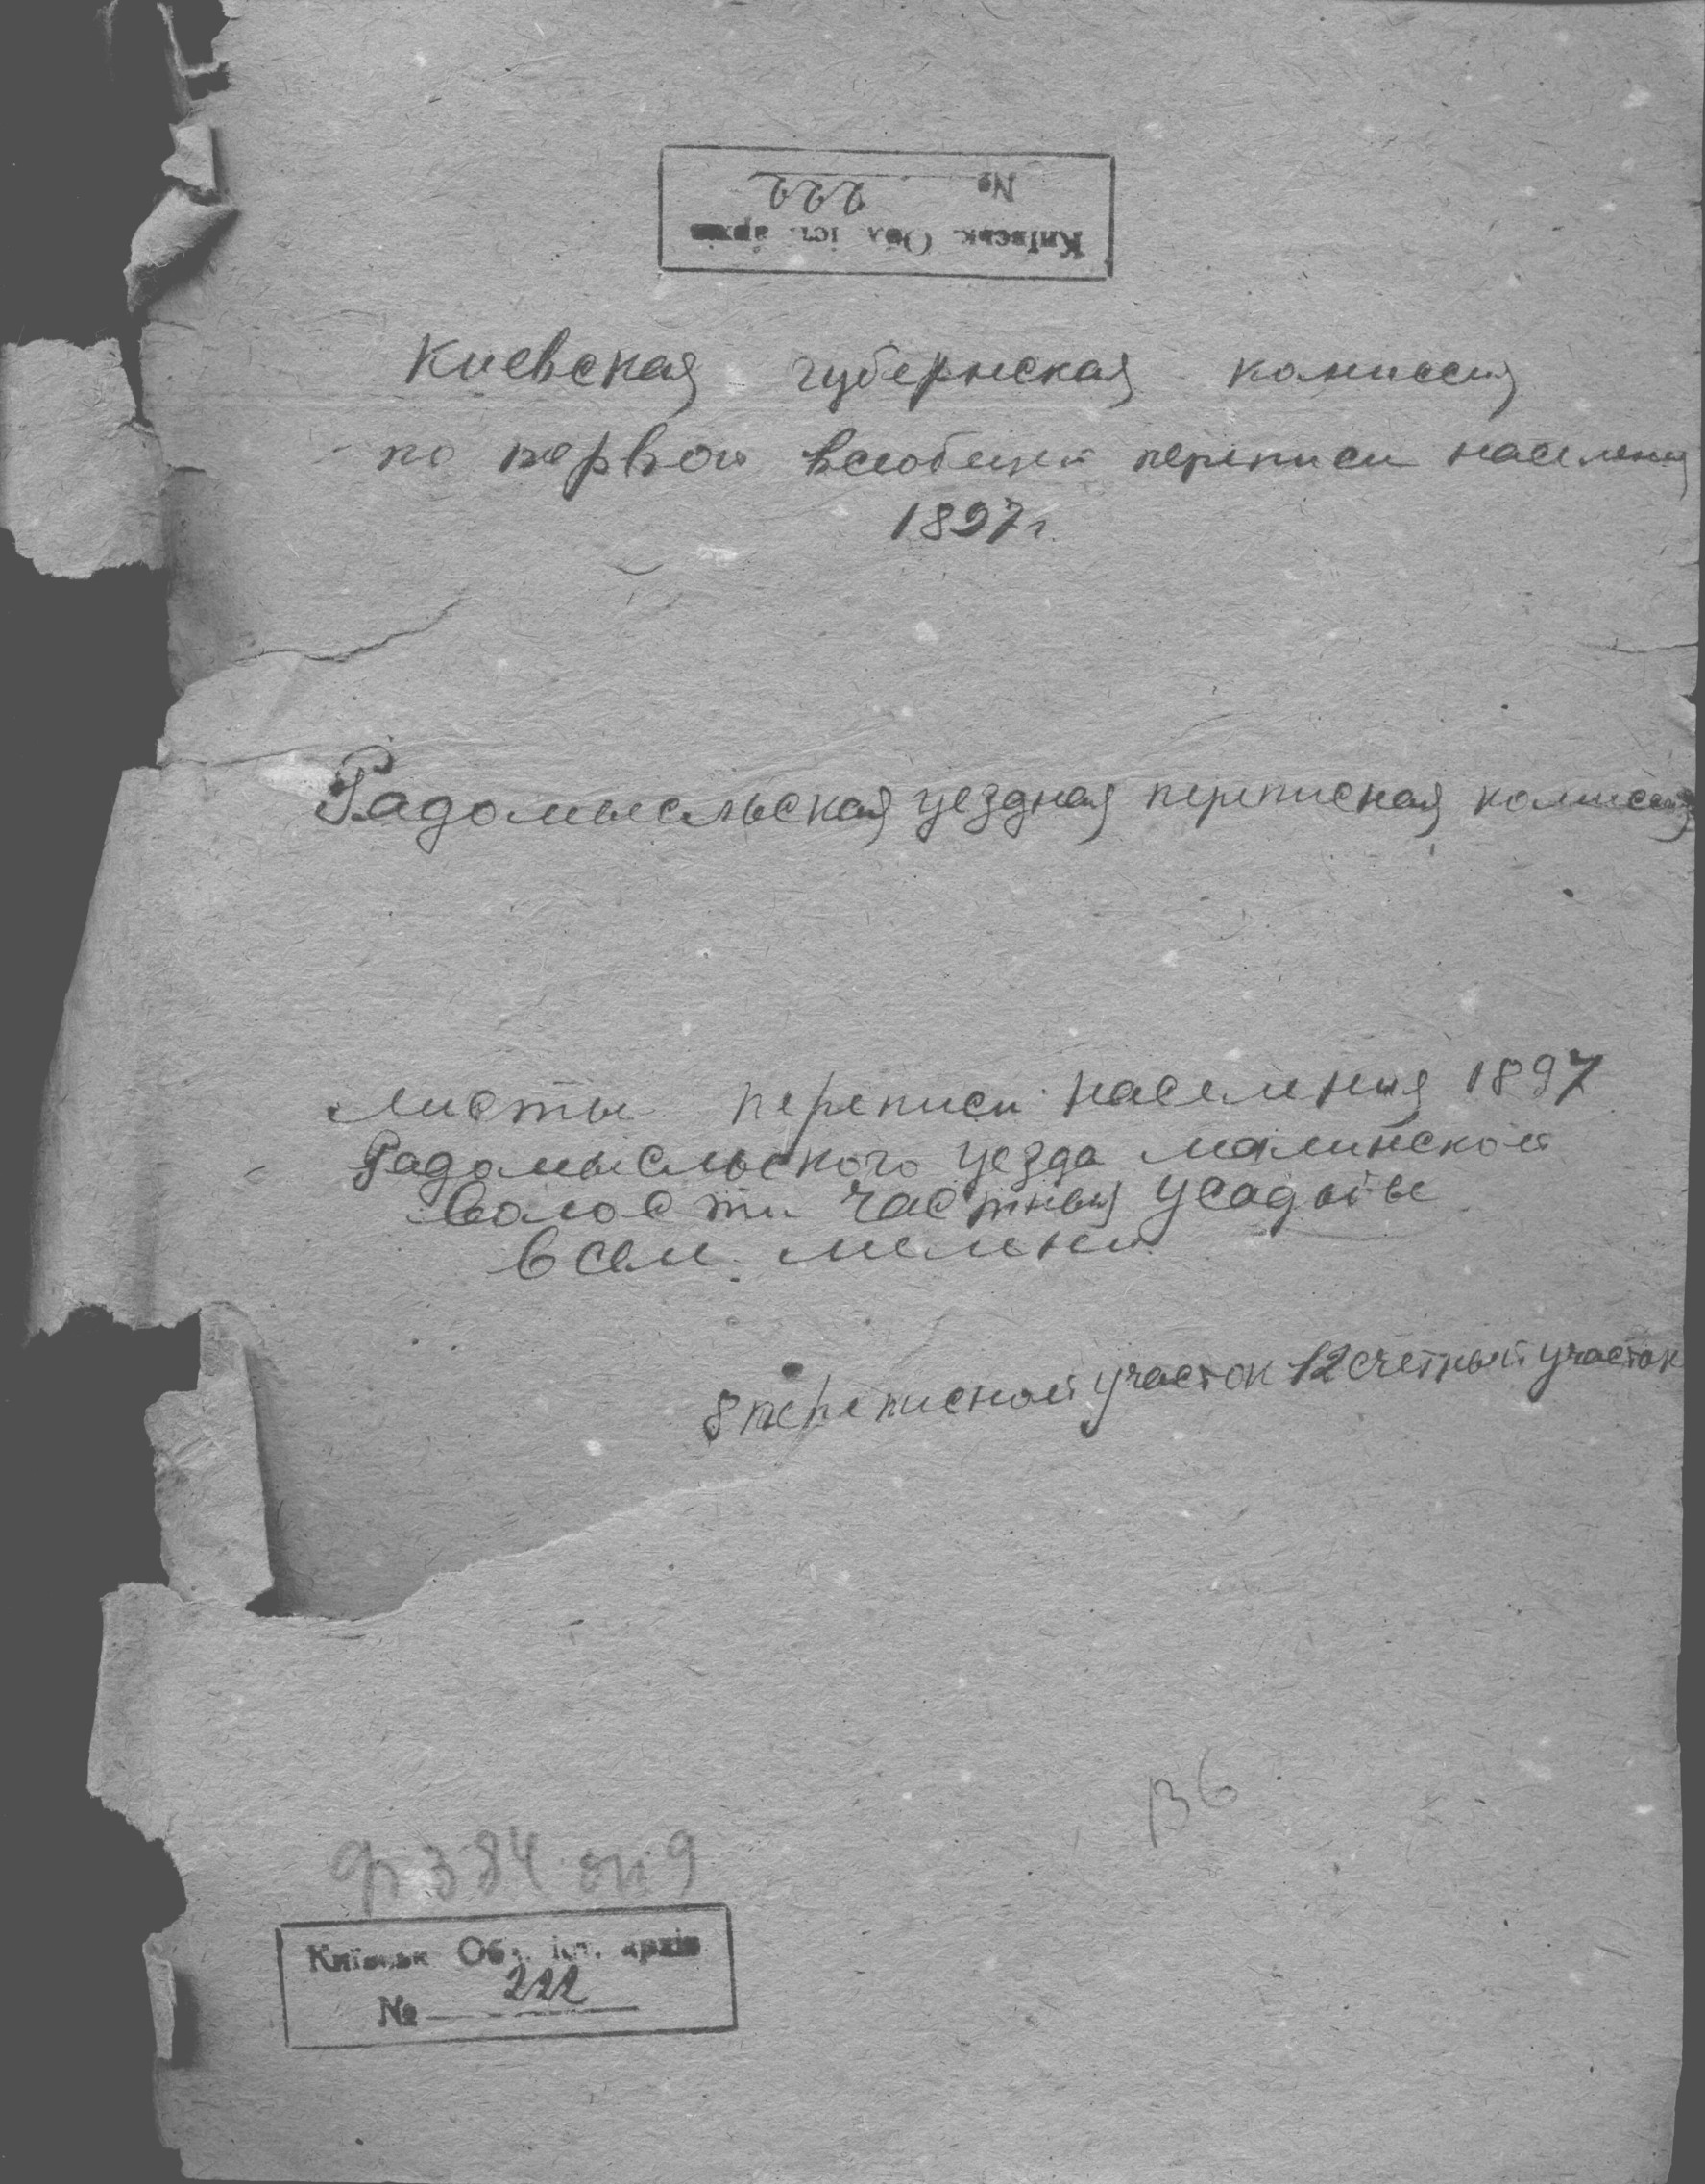 Київськ. Обл. іст. архів
№ 222
Киевская губернская комиссия
по первой всеобщей переписи населения
1897 г.
Радомысльская уездная переписная комиссия
Листы переписи населения 1897
Радомысльского уезда малинской
волости частныя усадьбы
в сел.
8 переписной участок 12 счетный участок
ф 384 оп 9
Київськ. Обл. іст. архів
№ 222